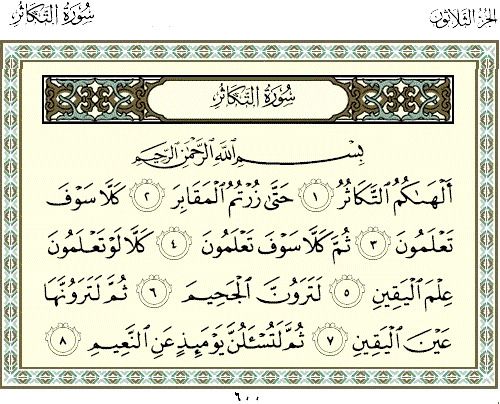 الجزء الثلاثون
سُورَةُ التَّكَاثُرِ
سُورَةُ التَّكَاثُرِ
بِسْمِ اللَّهِ الرَّحْمَٰنِ الرَّحِيمِ
أَلْهَىٰكُمُ التَّكَاثُرُ ١ حَتَّىٰ زُرْتُمُ الْمَقَابِرَ ٢ كَلَّا سَوْفَ
تَعْلَمُونَ ٣ ثُمَّ كَلَّا سَوْفَ تَعْلَمُونَ ٤ كَلَّا لَوْ تَعْلَمُونَ
عِلْمَ الْيَقِينِ ٥ لَتَرَوُنَّ الْجَحِيمَ ٦ ثُمَّ لَتَرَوُنَّهَا
عَيْنَ الْيَقِينِ ٧ ثُمَّ لَتُسْـَٔلُنَّ يَوْمَئِذٍ عَنِ النَّعِيمِ ٨
٦٠٠